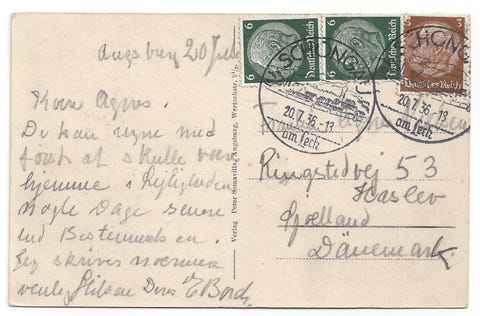 Augsburg 20 Juli
Kære Agnes.
De kan regne med
først at skulle være
hjemme i Lejligheden
nogle Dage senere
end Bestemmelsen.
Jeg skriver nærmere
venlig Hilsen Deres E Borch.
Verlag Peter Somavilla, Augsburg, Wertachstr.
6 Deutsches Reich
6 Deutsches Reich
3 Deutsches Reich
SCHONGAU
20.7.36-13
am Lech
SCHONGAU
20.7.36-13
am Lech
Agnes
Ringstedvej 53
Haslev
Sjoelland
Dänemark.